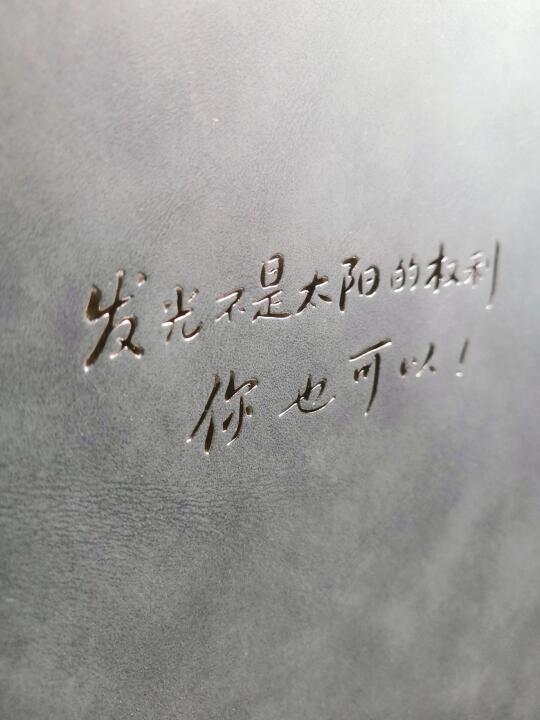 发光不是太阳的权利
你也可以！